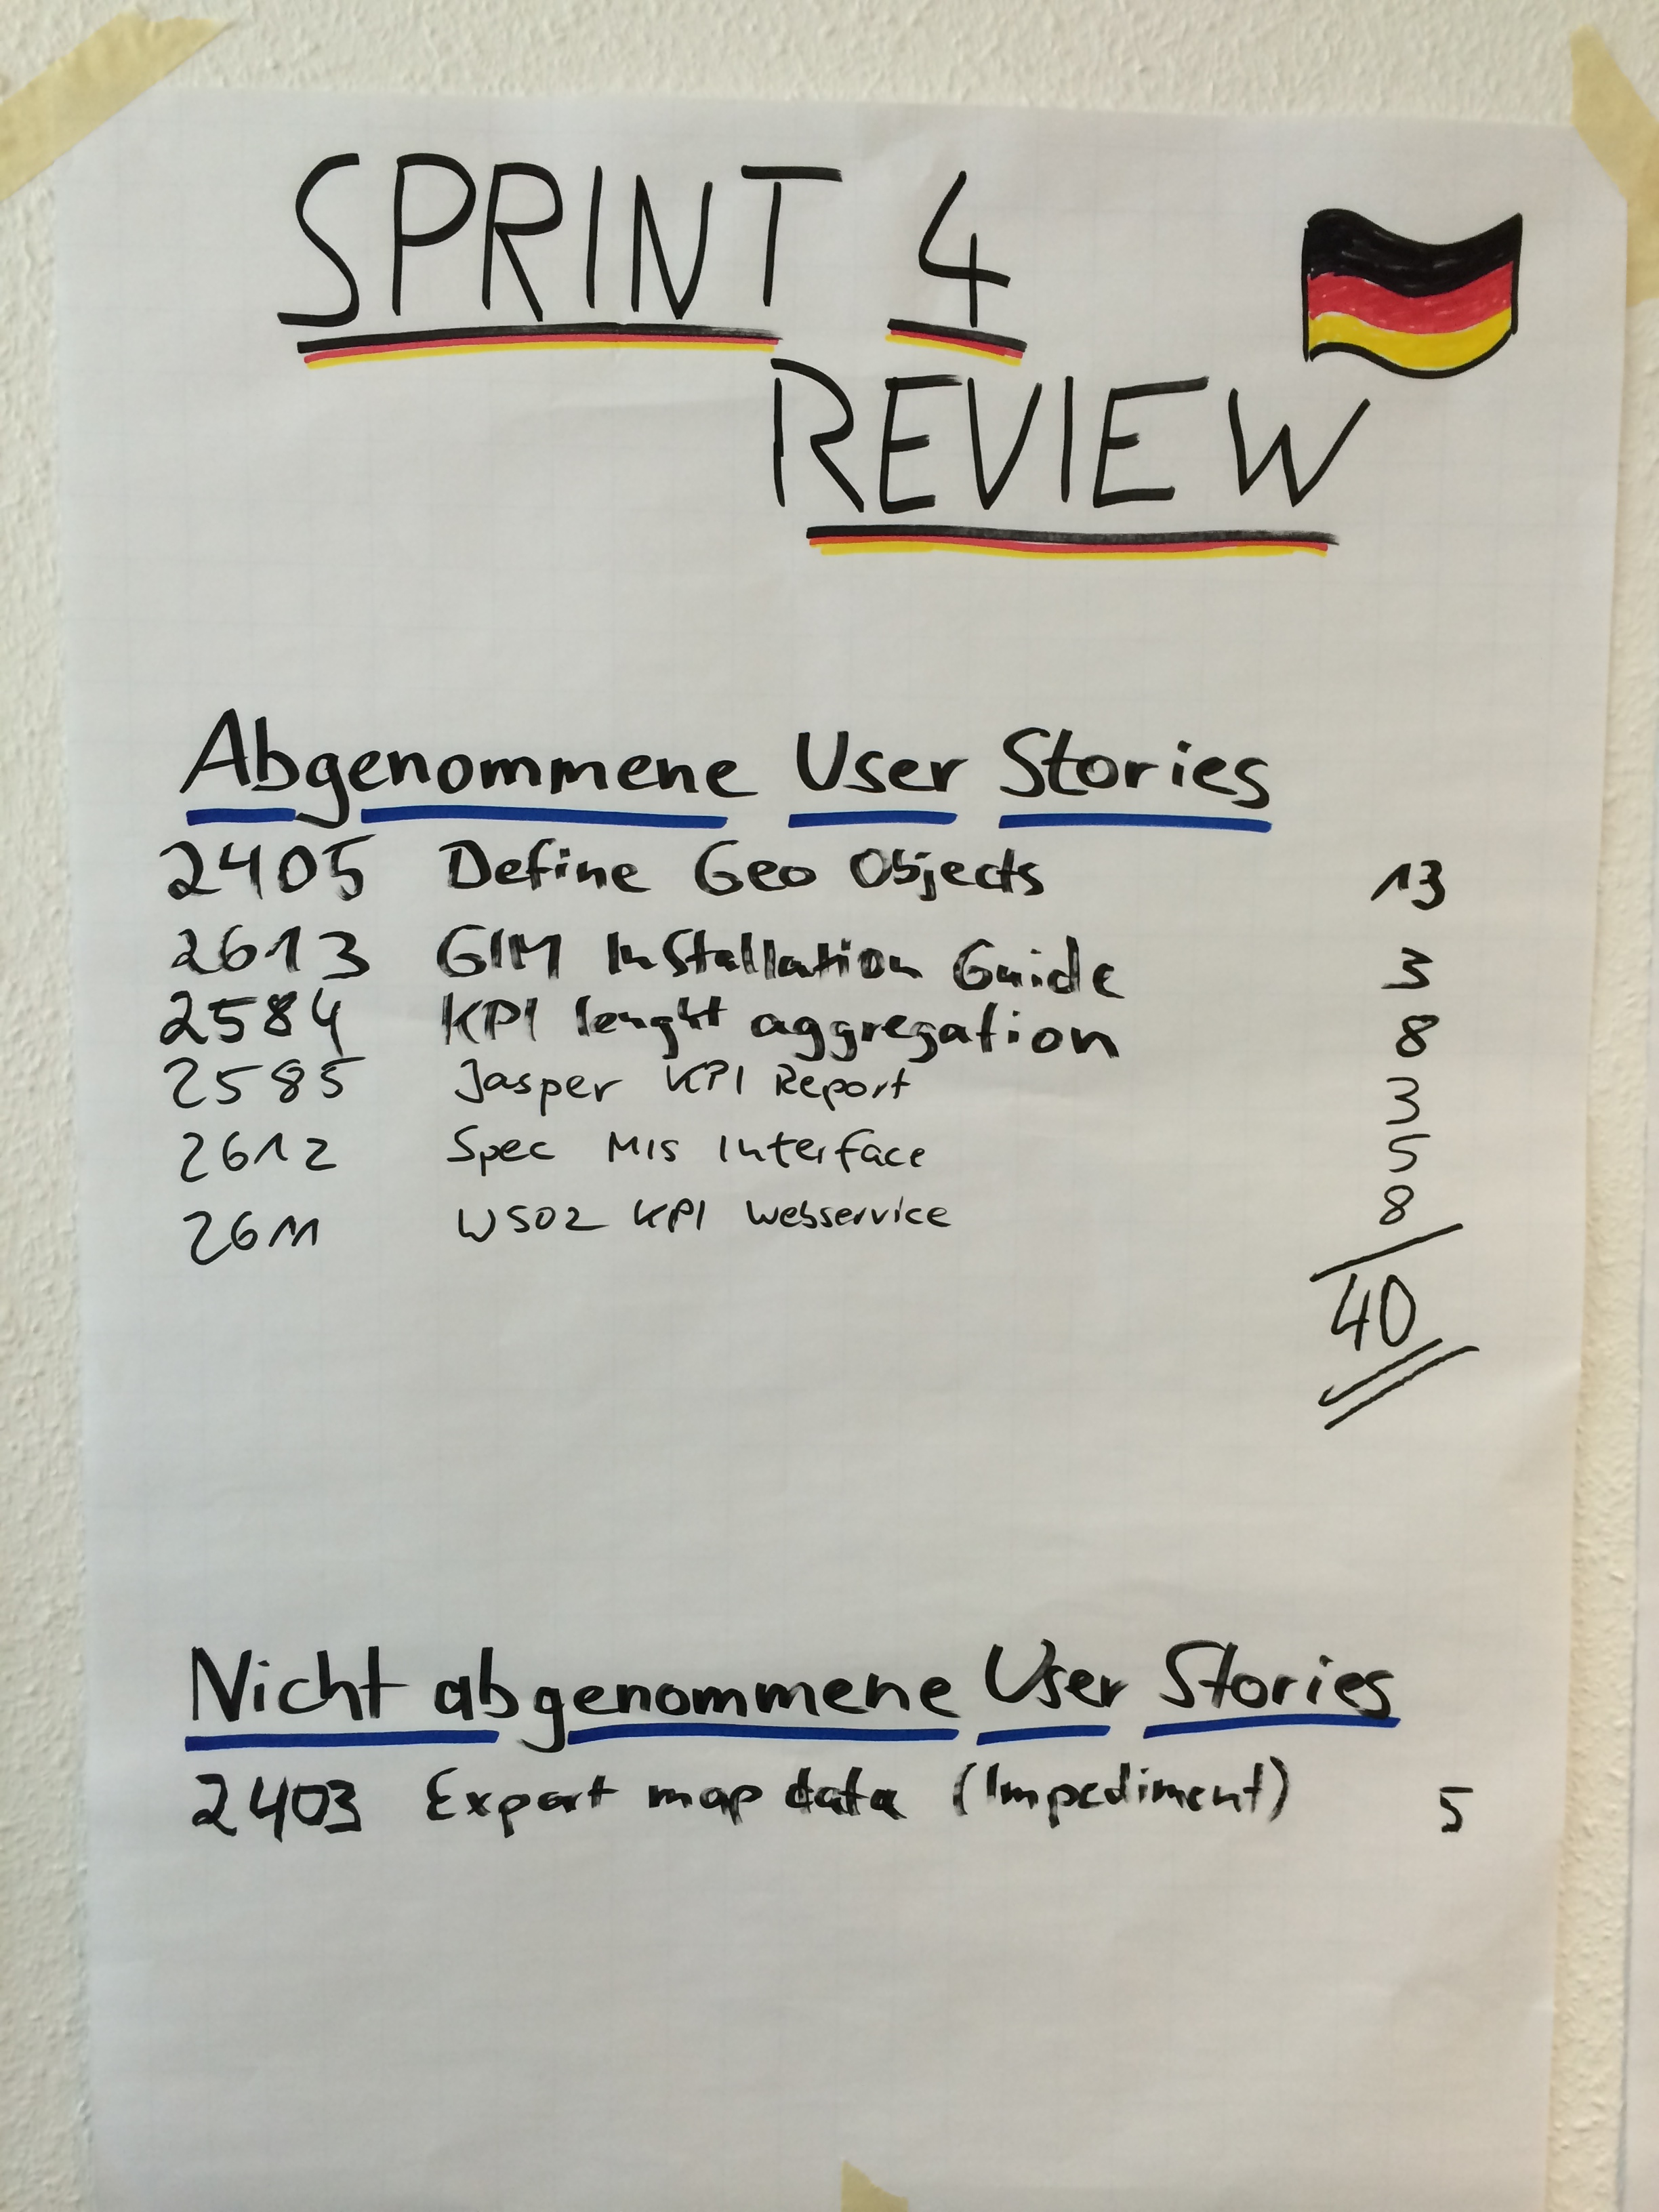 SPRINT 4
REVIEW
Abgenommene User Stories
2405 Define Geo Objects 13
2613 GIM Installation Guide 3
2584 KPI lenght aggregation 8
2585 Jasper KPI Report 3
2612 Spec MIS Interface 5
2611 WSO2 KPI Webservice 8
40
Nicht abgenommene User Stories
2403 Export map data (Impediment) 5